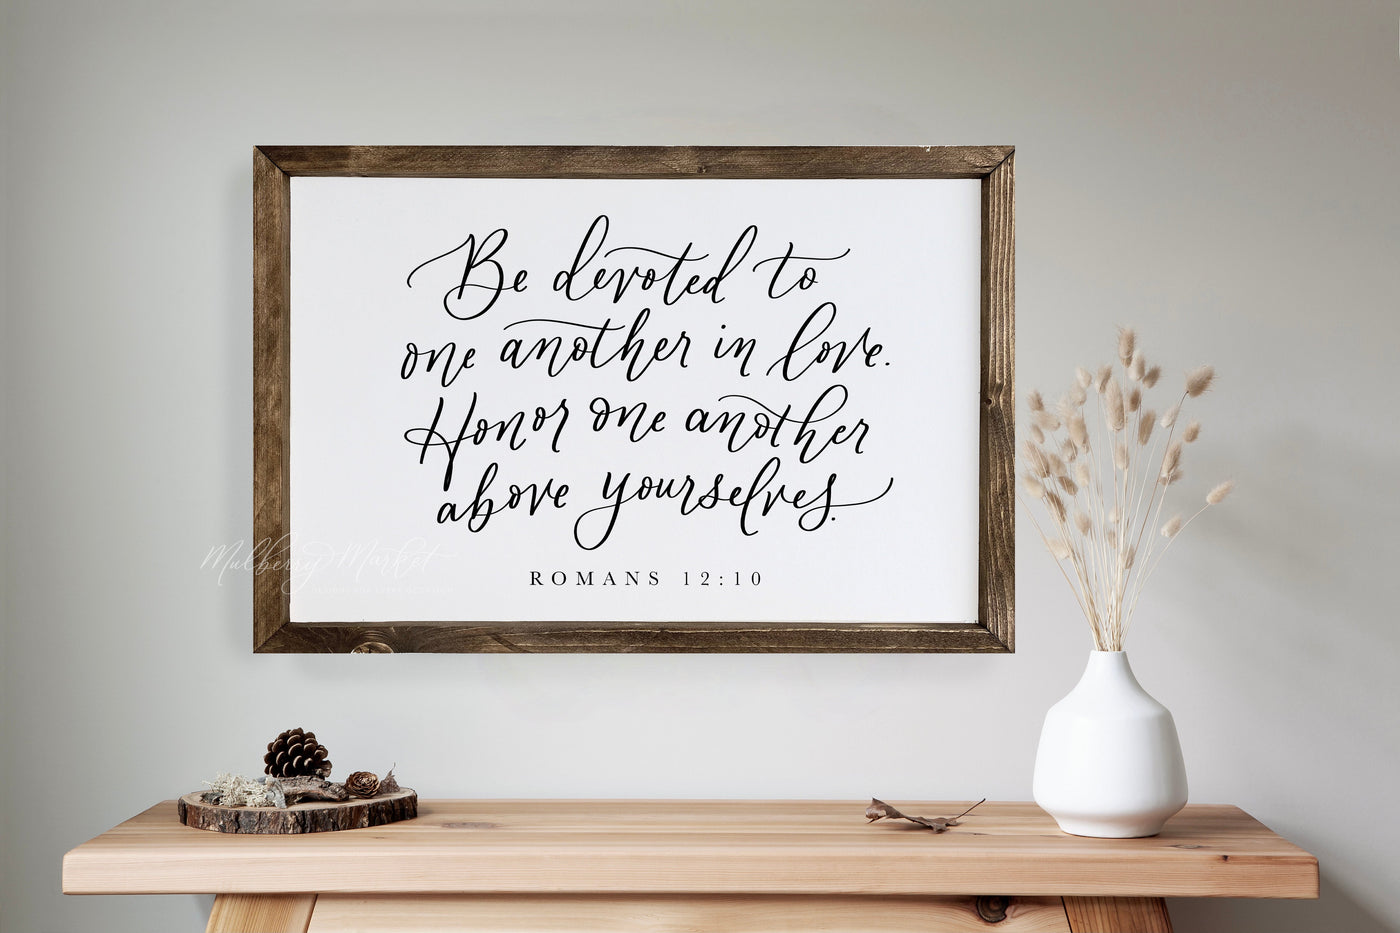 Be devoted to
one another in love.
Honor one another
above yourselves.
ROMANS 12:10
Mulberry Market